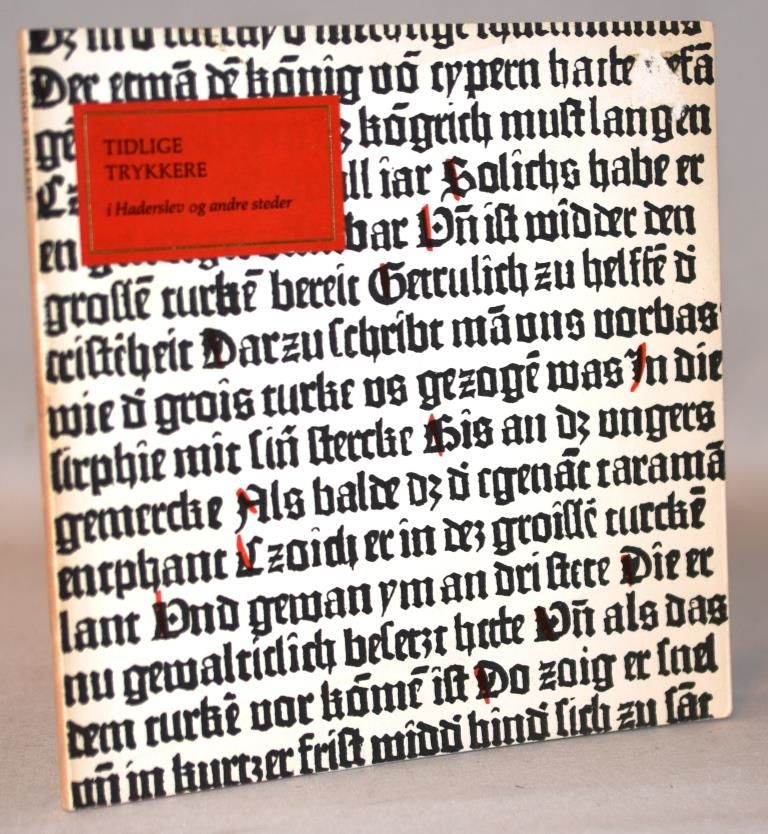 TIDLIGE
TRYKKERE
i Haderslev og andre steder
Der etwā dē kōnig vō cypern hatte
kōgrich must langen
iar Solichs habe er
en bar Vn̄ ist widder den
grossē turkē bereit Getrulich zu helffē d̄
cristēheit Dar zu schribt mā vns vorbas
wie d̄ grois turke vs gezogē was In die
sirphie mit sin̄ stercke Bis an dz vngers
gemercke Als balde dz d̄ egenāt caramā
entphant Czoich er in dez groissē turckē
lant Vnd gewan ym an dri stete Die er
nu gewalticlich besetzt hatte Vn̄ als das
dem turkē vor kōmē ist Do zoig er snel
vn̄ in kurtzer frist widd̄ hind̄ sich zu